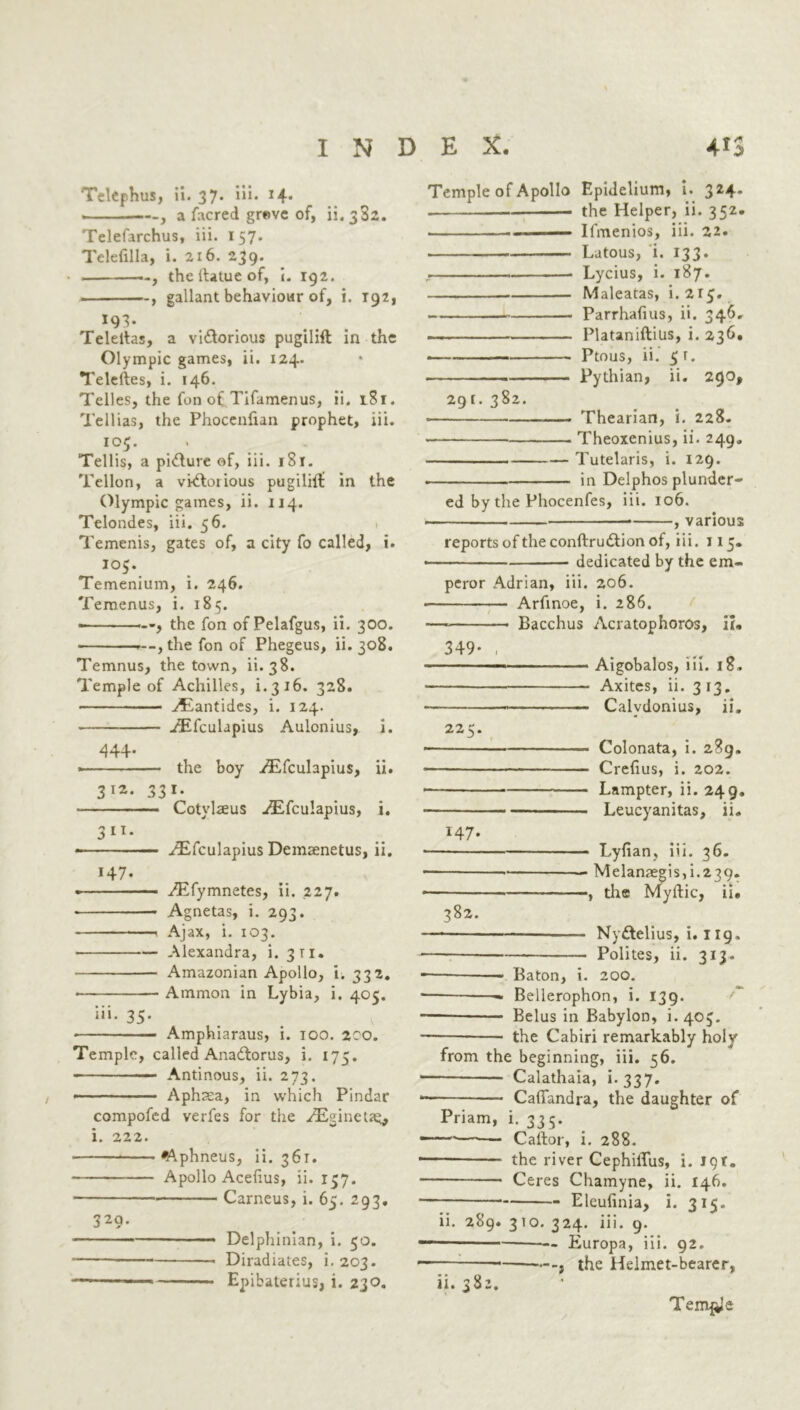 INDEX. 413
Telephus, ii. 37. iii. 14.
———, a ſacred grove of, ii. 382.
Teleſarchus, iii. 157.
Teleſilla, i. 216. 239.
———, the ſtatue of, i. 192.
———, gallant behaviour of, i. 192,
193.
Teleſtas, a victorious pugiliſt in the
Olympic games, ii. 124.
Teleſtes, i. 146.
Telles, the ſon of Tiſamenus, ii. 181.
Tellias, the Phocenſian prophet, iii.
105.
Tellis, a picture of, iii. 181.
Tellon, a victorious pugiliſt in the
Olympic games, ii. 114.
Telondes, iii. 56.
Temenis, gates of, a city ſo called, i.
105.
Temenium, i. 246.
Temenus, i. 185.
———, the ſon of Pelaſgus, ii. 300.
———, the ſon of Phegeus, ii. 308.
Temnus, the town, ii. 38.
Temple of Achilles, i. 316. 328.
——— Æantides, i. 124.
——— Æſculapius Aulonius, i.
444.
——— the boy Æſculapius, ii.
312. 331.
——— Cotylæus Æſculapius, i.
311.
——— Æſculapius Demænetus, ii.
147.
——— Æſymnetes, ii. 227.
——— Agnetas, i. 293.
——— Ajax, i. 103.
——— Alexandra, i. 311.
——— Amazonian Apollo, i. 332.
——— Ammon in Lybia, i. 405.
iii. 35.
——— Amphiaraus, i. 100. 200.
Temple, called Anactorus, i. 175.
——— Antinous, ii. 273.
——— Aphæa, in which Pindar
compoſed verſes for the Æginetæ,
i. 222.
——— Aphneus, ii. 361.
——— Apollo Aceſius, ii. 157.
——— ——— Carneus, i. 65. 293.
329.
——— ——— Delphinian, i. 50.
——— ——— Diradiates, i. 203.
——— ——— Epibaterius, i. 230.
Temple of Apollo Epidelium, i. 324.
——— ——— the Helper, ii. 352.
——— ——— Iſmenios, iii. 22.
——— ——— Latous, i. 133.
——— ——— Lycius, i. 187.
——— ——— Maleatas, i. 215.
——— ——— Parrhaſius, ii. 346.
——— ——— Plataniſtius, i. 236.
——— ——— Ptous, ii. 51.
——— ——— Pythian, ii. 290,
291. 382.
——— ——— Thearian, i. 228.
——— ——— Theoxenius, ii. 249.
——— ——— Tutelaris, i. 129.
——— ——— in Delphos plunder-
ed by the Phocenſes, iii. 106.
——— ——— ———, various
reports of the conſtruction of, iii. 115.
——— ——— dedicated by the em-
peror Adrian, iii. 206.
——— Arſinoe, i. 286.
——— Bacchus Acratophoros, ii.
349.
——— ——— Aigobalos, iii. 18.
——— ——— Axites, ii. 313.
——— ——— Calydonius, ii.
225.
——— ——— Colonata, i. 289.
——— ——— Creſius, i. 202.
——— ——— Lampter, ii. 249.
——— ——— Leucyanitas, ii.
147.
——— ——— Lyſian, iii. 36.
——— ——— Melanægis, i. 239.
——— ———, the Myſtic, ii.
382.
——— ——— Nyctelius, i. 119.
——— ——— Polites, ii. 313.
——— Baton, i. 200.
——— Bellerophon, i. 139.
——— Belus in Babylon, i. 405.
——— the Cabiri remarkably holy
from the beginning, iii. 56.
——— Calathaia, i. 337.
——— Caſſandra, the daughter of
Priam, i. 335.
——— Caſtor, i. 288.
——— the river Cephiſſus, i. 191.
——— Ceres Chamyne, ii. 146.
——— ——— Eleuſinia, i. 315.
ii. 289. 310. 324. iii. 9.
——— ——— Europa, iii. 92.
——— ———, the Helmet-bearer,
ii. 382.
Temple